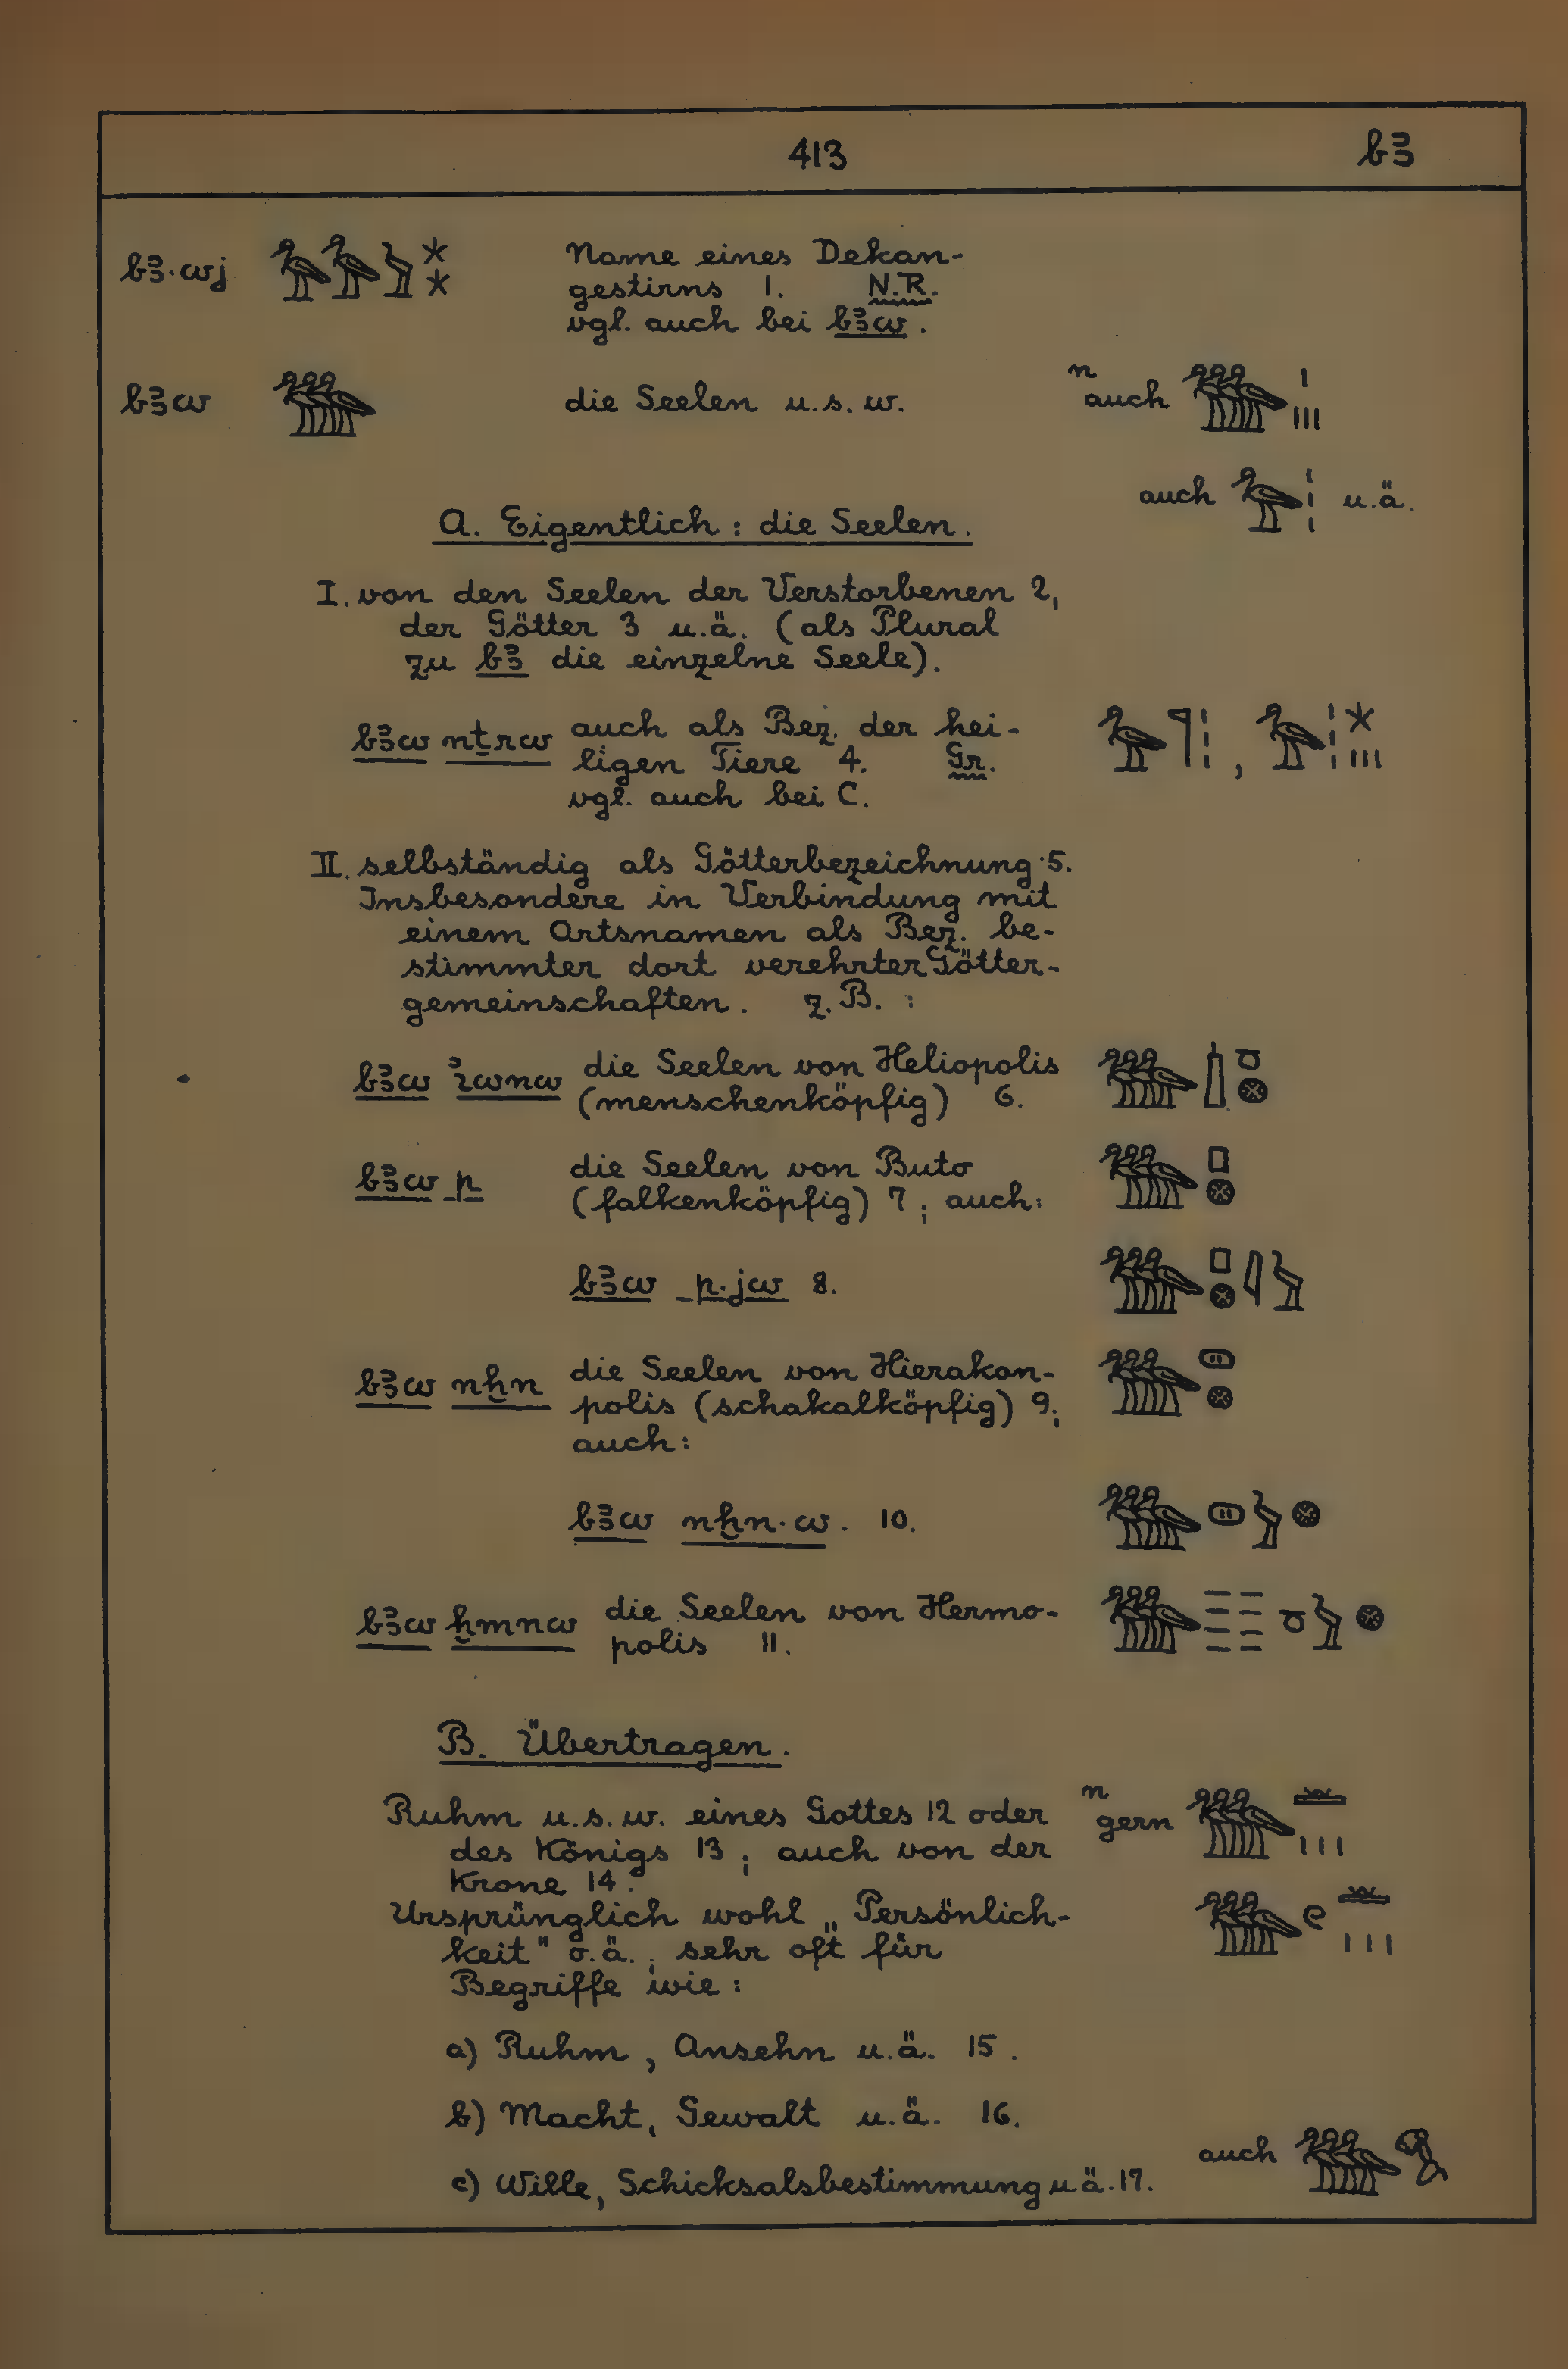 413 bꜣ
bꜣ·wj Name eines Dekan-
gestirns 1. N.R.
vgl. auch bei bꜣw.
bꜣw die Seelen u.s.w. n auch
auch u.ä.
A. Eigentlich: die Seelen.
I. von den Seelen der Verstorbenen 2,
der Götter 3 u.ä. (als Plural
zu bꜣ die einzelne Seele).
bꜣw nṯrw auch als Bez. der hei-
ligen Tiere 4. Gr.
vgl. auch bei C.
II. selbständig als Götterbezeichnung 5.
Insbesondere in Verbindung mit
einem Ortsnamen als Bez. be-
stimmter dort verehrter Götter-
gemeinschaften. z.B.:
bꜣw ꞽwnw die Seelen von Heliopolis
(menschenköpfig) 6.
bꜣw p die Seelen von Buto
(falkenköpfig) 7; auch:
bꜣw p·jw 8.
bꜣw nḫn die Seelen von Hierakon-
polis (schakalköpfig) 9;
auch:
bꜣw nḫn·w. 10.
bꜣw ḫmnw die Seelen von Hermo-
polis 11.
B. Übertragen.
Ruhm u.s.w. eines Gottes 12 oder n gern
des Königs 13; auch von der
Krone 14.
Ursprünglich wohl „Persönlich-
keit" o.ä.; sehr oft für
Begriffe wie:
a) Ruhm, Ansehn u.ä. 15.
b) Macht, Gewalt u.ä. 16.
auch
c) Wille, Schicksalsbestimmung u.ä. 17.